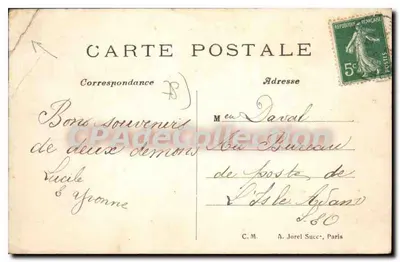 CARTE POSTALE
Correspondance
Adresse
RÉPUBLIQUE FRANÇAISE
5c
POSTES
Bons souvenirs
de deux démons
Lucile
& Yvonne
Mon Daval
Au Bureau
de poste de
L'Isle Adam
S.&O
CPACollection
C. M. A. Jorel Succr, Paris